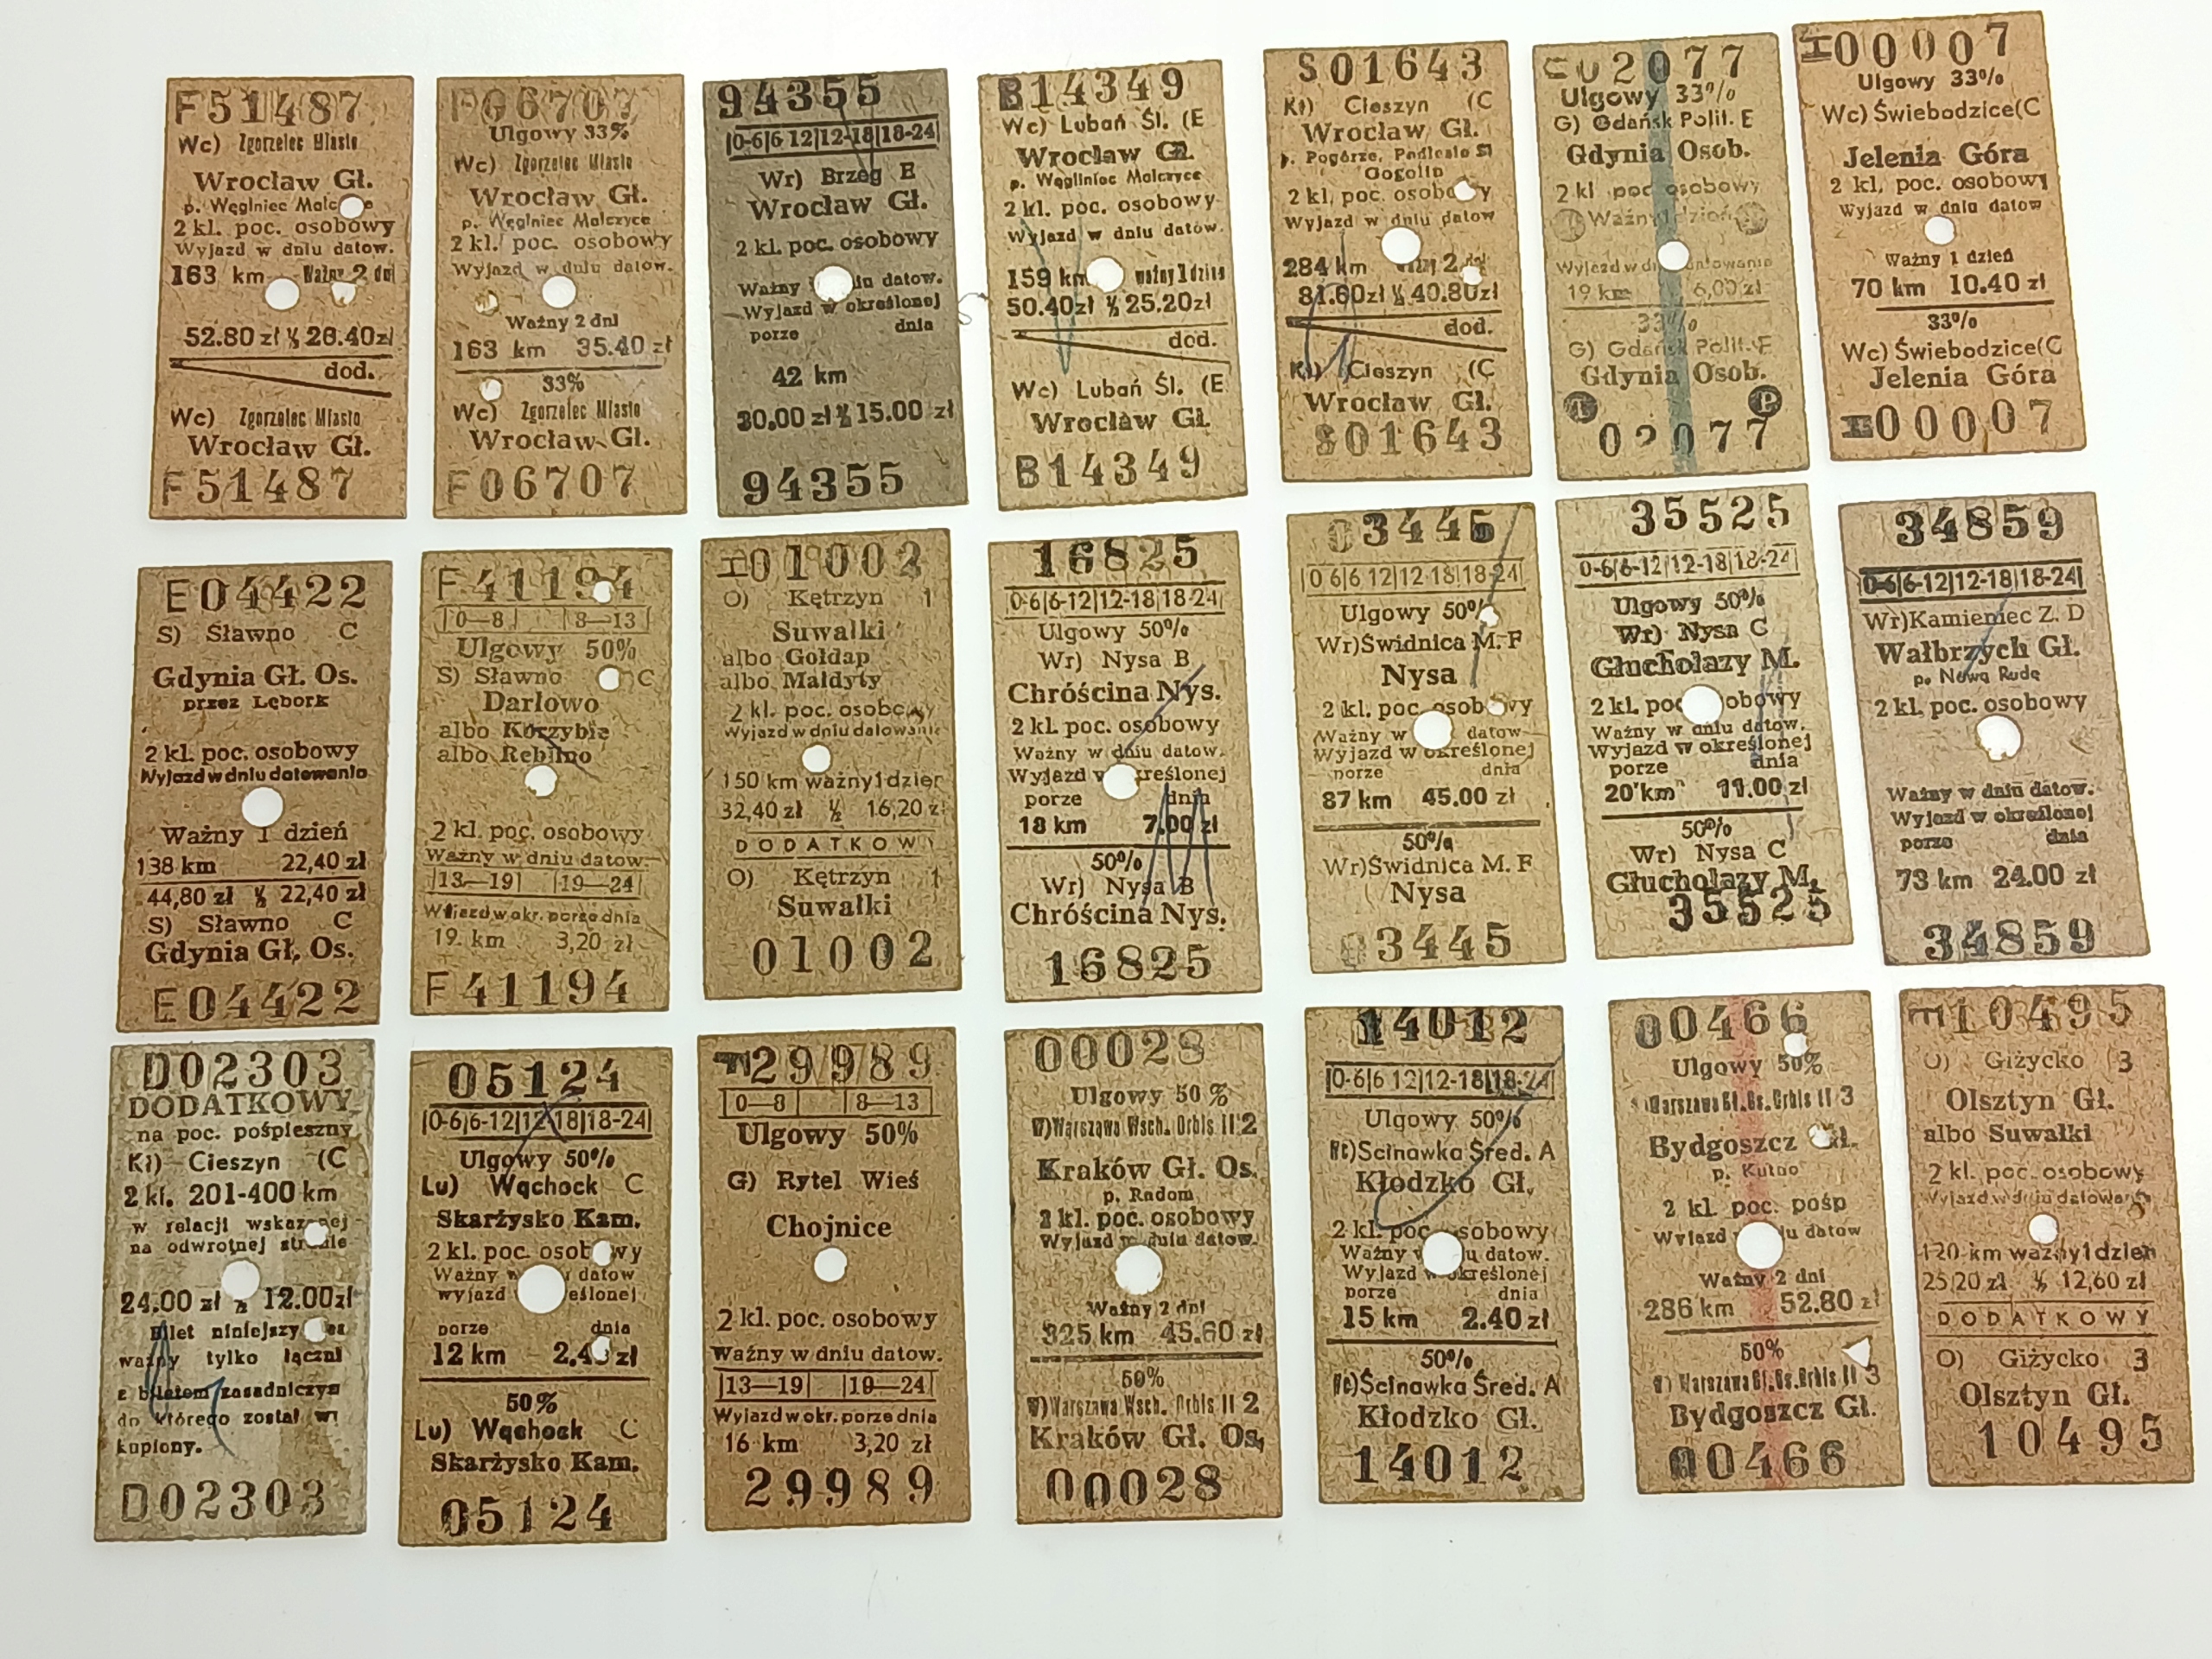 F51487
Wc) Zgorzelec Miasto
Wrocław Gł.
p. Węglniec
2 kl. poc. osobowy
Wyjazd w dniu datow.
163 km Ważny 2 dni
52.80 zł ½ 26.40zł
dod.
Wc) Zgorzelec Miasto
Wrocław Gł.
F51487
F06707
Ulgowy 33%
Wc) Zgorzelec Miasto
Wrocław Gł.
p. Węglniec Malczyce
2 kl. poc. osobowy
Wyjazd w dniu datow.
Ważny 2 dni
163 km 35.40 zł
33%
Wc) Zgorzelec Miasto
Wrocław Gł.
F06707
94355
|0-6|6 12|12-18|18-24|
Wr) Brzeg E
Wrocław Gł.
2 kl. poc. osobowy
Ważny datow.
Wyjazd w określonej
porze dnia
42 km
30,00 zł ½ 15.00 zł
94355
B14349
Wc) Lubań Śl. (E
Wrocław Gł.
p. Węgliniec Malczyce
2 kl. poc. osobowy
Wyjazd w dniu datow.
159 km ważny 1 dzień
50.40zł ½ 25.20zł
dod.
Wc) Lubań Śl. (E
Wrocław Gł.
B14349
S01643
Kt) Cieszyn (C
Wrocław Gł.
p. Pogórze, Podlesie Śl
Gogolin
2 kl. poc. osobowy
Wyjazd w dniu datow
284 km 2
81.60zł ½ 40.80zł
dod.
Kt) Cieszyn (C
Wrocław Gł.
S01643
02077
Ulgowy 33%
G) Gdańsk Polit. E
Gdynia Osob.
2 kl poc osobowy
Ważny 1 dzień
Wyjazd w datowania
19 km 6,00 zł
33%
G) Gdańsk Polit. E
Gdynia Osob.
T P
02077
H00007
Ulgowy 33%
Wc) Świebodzice(C
Jelenia Góra
2 kl. poc. osobowy
Wyjazd w dniu datow
Ważny 1 dzień
70 km 10.40 zł
33%
Wc) Świebodzice(C
Jelenia Góra
H00007
E04422
S) Sławno C
Gdynia Gł. Os.
przez Lębork
2 kl. poc. osobowy
Wyjazd w dniu datowania
Ważny 1 dzień
138 km 22,40 zł
44,80 zł ½ 22,40 zł
S) Sławno C
Gdynia Gł. Os.
E04422
F41194
|0—8| |8—13|
Ulgowy 50%
S) Sławno C
Darłowo
albo Korzybie
albo Reblino
2 kl. poc. osobowy
Ważny w dniu datow.
|13—19| |19—24|
Wyjazd w okr. porze dnia
19 km 3,20 zł
F41194
H01002
O) Kętrzyn 1
Suwałki
albo Gołdap
albo Małdyty
2 kl. poc. osobowy
Wyjazd w dniu datowania
150 km ważny 1 dzień
32,40 zł ½ 16,20 zł
DODATKOWY
O) Kętrzyn 1
Suwałki
01002
16825
|0-6|6-12|12-18|18-24|
Ulgowy 50%
Wr) Nysa B
Chróścina Nys.
2 kl. poc. osobowy
Ważny w dniu datow.
Wyjazd w określonej
porze dnia
18 km 7.00 zł
50%
Wr) Nysa B
Chróścina Nys.
16825
03445
|0 6|6 12|12 18|18-24|
Ulgowy 50%
Wr)Świdnica M. F
Nysa
2 kl. poc. osobowy
Ważny w datow
Wyjazd w określonej
porze dnia
87 km 45.00 zł
50%
Wr)Świdnica M. F
Nysa
03445
35525
0-6|6-12|12-18|18-24|
Ulgowy 50%
Wr) Nysa C
Głuchołazy M.
2 kl. poc. osobowy
Ważny w dniu datow.
Wyjazd w określonej
porze dnia
20 km 11.00 zł
50%
Wr) Nysa C
Głuchołazy M.
35525
34859
|0-6|6-12|12-18|18-24|
Wr)Kamieniec Z. D
Wałbrzych Gł.
p. Nową Rudę
2 kl. poc. osobowy
Ważny w dniu datow.
Wyjazd w określonej
porze dnia
73 km 24.00 zł
34859
D02303
DODATKOWY
na poc. pośpieszny
Kł) Cieszyn (C
2 kl. 201-400 km
w relacji wskazanej
na odwrotnej stronie
24.00 zł ½ 12.00zł
Bilet niniejszy jest
ważny tylko łączni
z biletem zasadniczym
do którego został wy
kupiony.
D02303
05124
|0-6|6-12|12-18|18-24|
Ulgowy 50%
Lu) Wąchock C
Skarżysko Kam.
2 kl. poc. osobowy
Ważny w datow
wyjazd określonej
porze dnia
12 km 2.40 zł
50%
Lu) Wąchock C
Skarżysko Kam.
05124
29989
|0—8| |8—13|
Ulgowy 50%
G) Rytel Wieś
Chojnice
2 kl. poc. osobowy
Ważny w dniu datow.
|13—19| |19—24|
Wyjazd w okr. porze dnia
16 km 3,20 zł
29989
00028
Ulgowy 50 %
W)Warszawa Wsch. Orbis II 2
Kraków Gł. Os.
p. Radom
2 kl. poc. osobowy
Wyjazd w dniu datow.
Ważny 2 dni
325 km 45.60 zł
50%
W)Warszawa Wsch. Orbis II 2
Kraków Gł. Os.
00028
14012
|0-6|6 12|12-18|18-24|
Ulgowy 50%
Wc)Ścinawka Śred. A
Kłodzko Gł.
2 kl. poc. osobowy
Ważny w datow.
Wyjazd w określonej
porze dnia
15 km 2.40 zł
50%
Wc)Ścinawka Śred. A
Kłodzko Gł.
14012
00466
Ulgowy 50%
Warszawa Gł. Os. Orbis II 3
Bydgoszcz Gł.
p. Kutno
2 kl. poc. pośp
Wyjazd w dniu datow
Ważny 2 dni
286 km 52.80 zł
50%
W) Warszawa Gł. Os. Orbis II 3
Bydgoszcz Gł.
00466
E10495
O) Giżycko (3
Olsztyn Gł.
albo Suwałki
2 kl. poc. osobowy
Wyjazd w dniu datowania
120 km ważny 1 dzień
25,20 zł ½ 12,60 zł
DODATKOWY
O) Giżycko 3
Olsztyn Gł.
10495